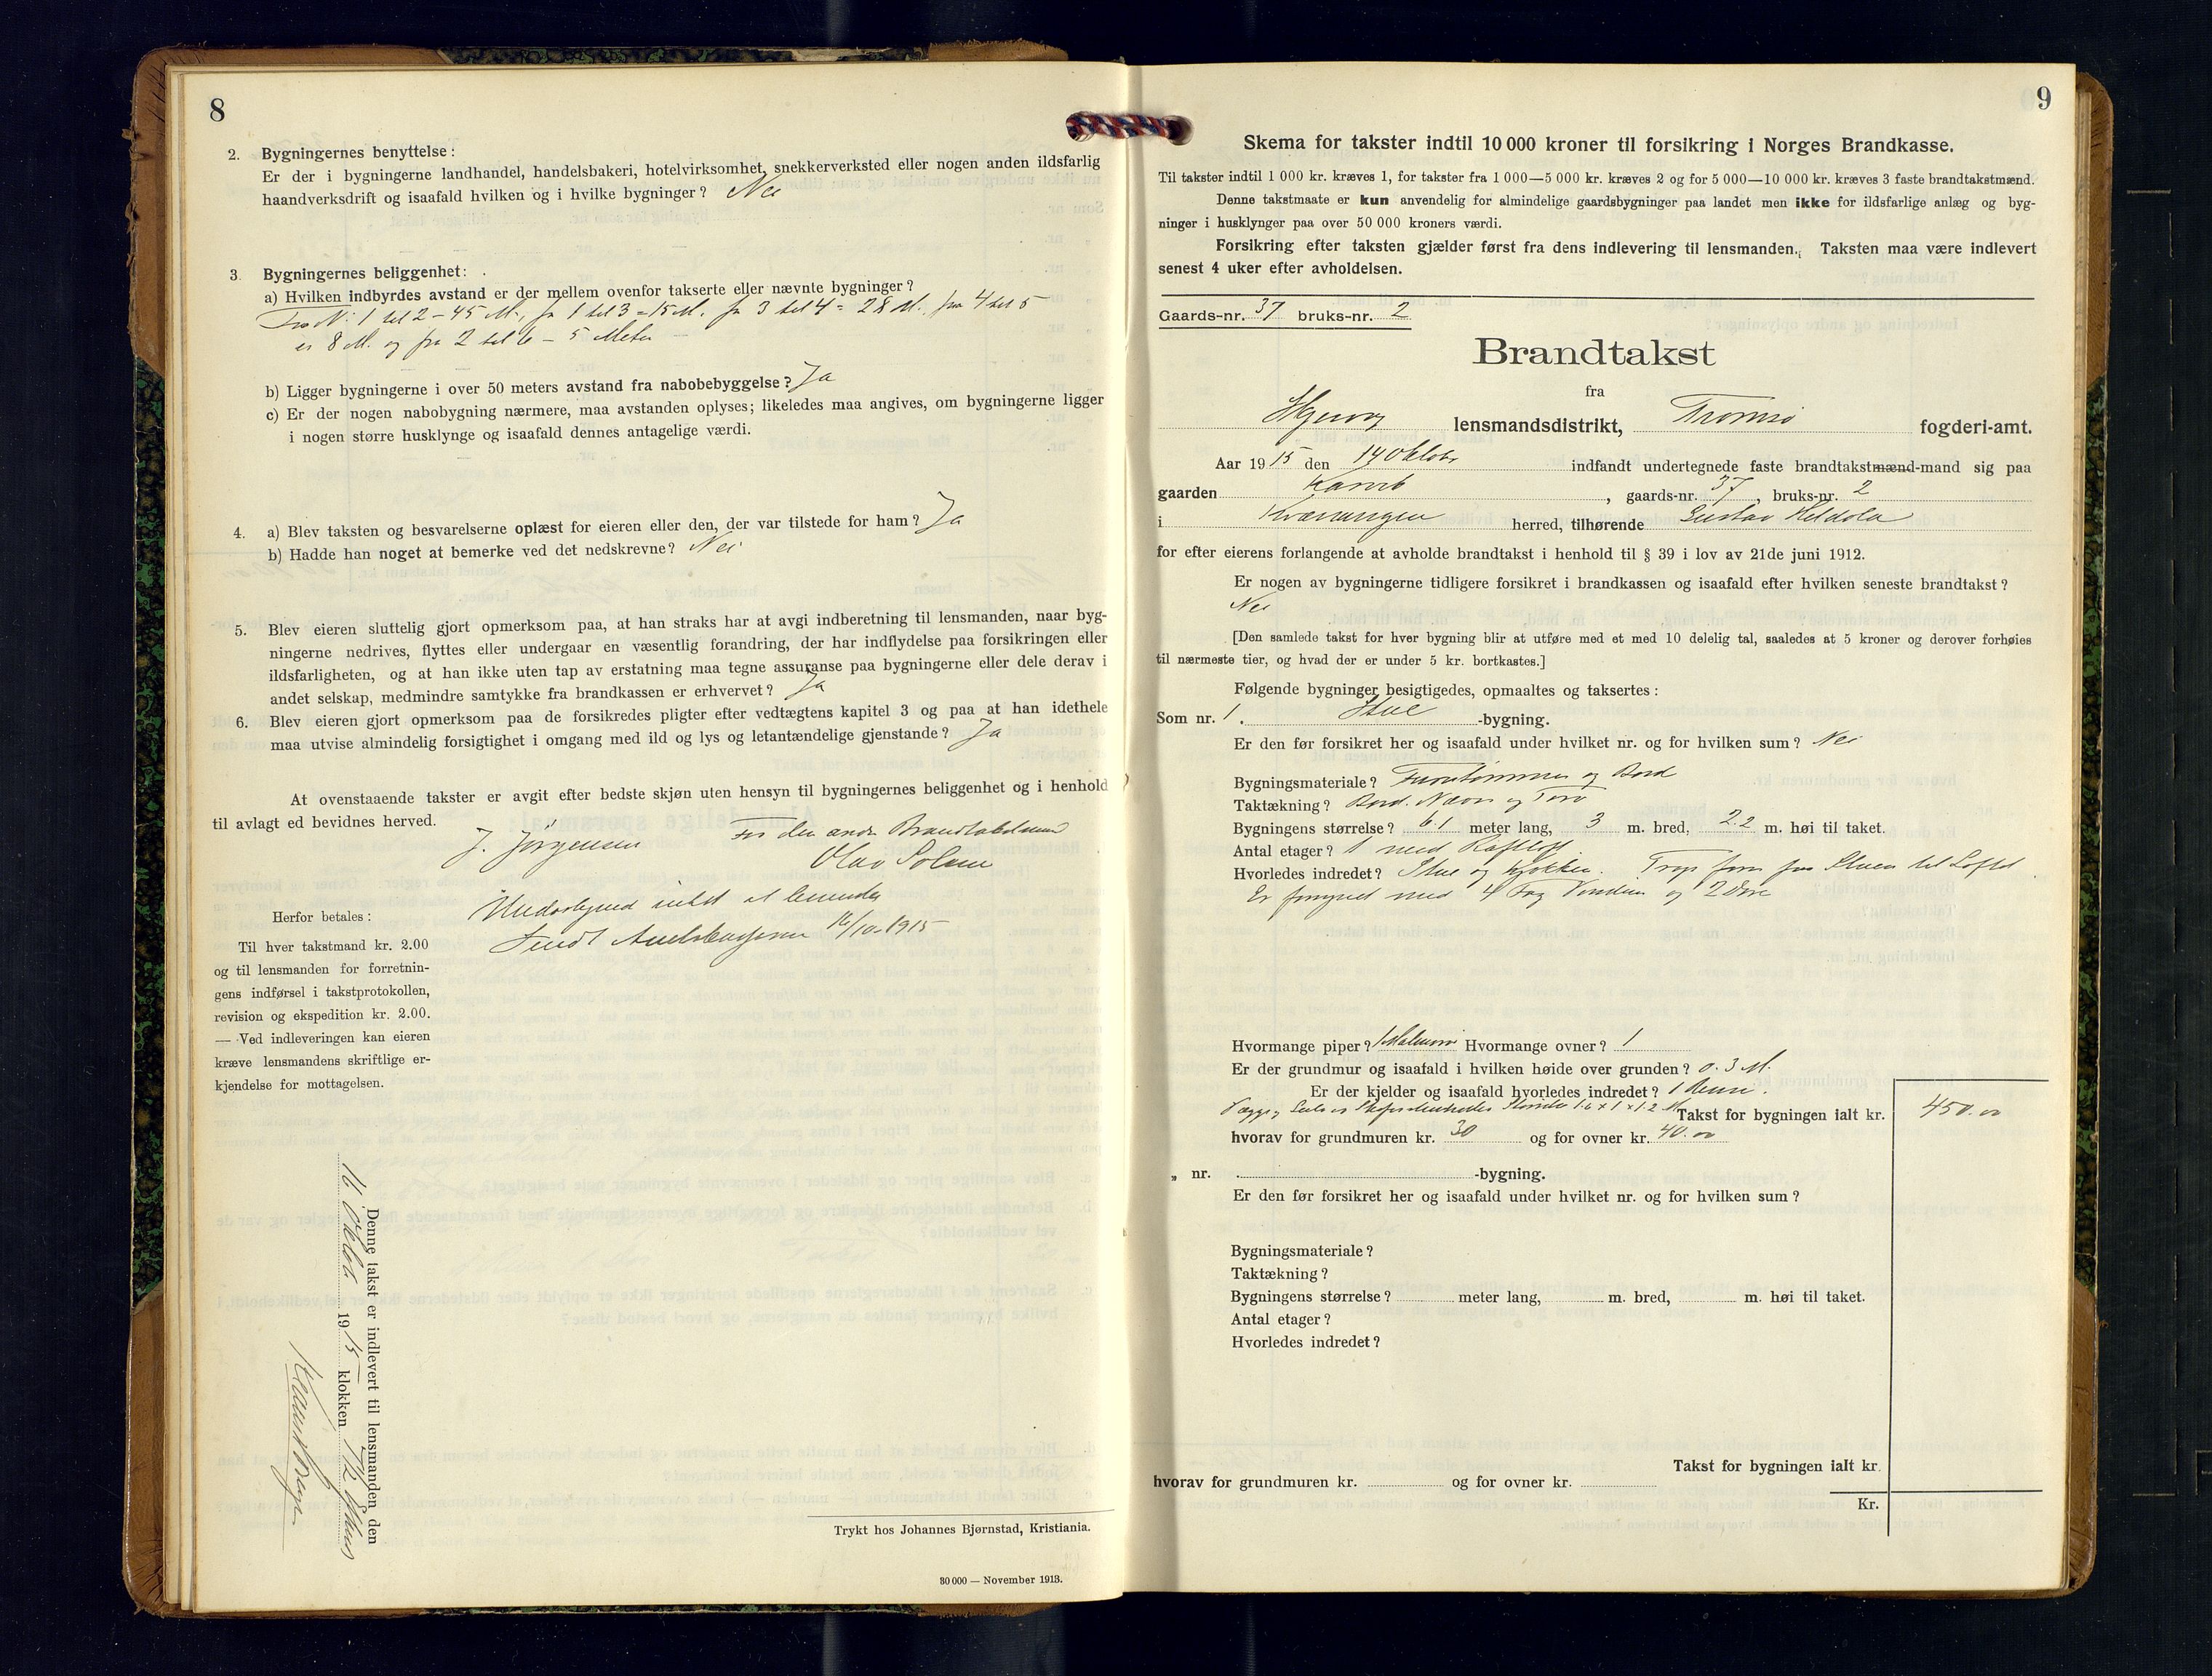 8
2. Bygningernes benyttelse:
Er der i bygningerne landhandel, handelsbakeri, hotelvirksomhet, snekkerverksted eller nogen anden ildsfarlig
haandverksdrift og isaafald hvilken og i hvilke bygninger? Nei
3. Bygningernes beliggenhet:
a) Hvilken indbyrdes avstand er der mellem ovenfor takserte eller nævnte bygninger?
Fra No 1 til 2 – 45 M., fr 1 til 3 = 15 M. fr 3 til 4 = 28 M. fra 4 til 5
er 8 M. og fra 2 til 6 – 5 Meter
b) Ligger bygningerne i over 50 meters avstand fra nabobebyggelse? Ja
c) Er der nogen nabobygning nærmere, maa avstanden oplyses; likeledes maa angives, om bygningerne ligger
i nogen større husklynge og isaafald dennes antagelige værdi.
4. a) Blev taksten og besvarelserne oplæst for eieren eller den, der var tilstede for ham? Ja
b) Hadde han noget at bemerke ved det nedskrevne? Nei
5. Blev eieren sluttelig gjort opmerksom paa, at han straks har at avgi indberetning til lensmanden, naar byg-
ningerne nedrives, flyttes eller undergaar en væsentlig forandring, der har indflydelse paa forsikringen eller
ildsfarligheten, og at han ikke uten tap av erstatning maa tegne assuranse paa bygningerne eller dele derav i
andet selskap, medmindre samtykke fra brandkassen er erhvervet? Ja
6. Blev eieren gjort opmerksom paa de forsikredes pligter efter vedtægtens kapitel 3 og paa at han idethele
maa utvise almindelig forsigtighet i omgang med ild og lys og letantændelige gjenstande? Ja
At ovenstaaende takster er avgit efter bedste skjøn uten hensyn til bygningernes beliggenhet og i henhold
til avlagt ed bevidnes herved.
J. Jörgensen
For den andre
Olav Solem
16/10-1915
Herfor betales:
Til hver takstmand kr. 2.00
og til lensmanden for forretnin-
gens indførsel i takstprotokollen,
revision og ekspedition kr. 2.00.
— Ved indleveringen kan eieren
kræve lensmandens skriftlige er-
kjendelse for mottagelsen.
Denne takst er indlevert til lensmanden den
16 Oktob. 1915 klokken
Trykt hos Johannes Bjørnstad, Kristiania.
30 000 — November 1913.
9
Skema for takster indtil 10 000 kroner til forsikring i Norges Brandkasse.
Til takster indtil 1 000 kr. kræves 1, for takster fra 1 000—5 000 kr. kræves 2 og for 5 000—10 000 kr. kræves 3 faste brandtakstmænd.
Denne takstmaate er kun anvendelig for almindelige gaardsbygninger paa landet men ikke for ildsfarlige anlæg og byg-
ninger i husklynger paa over 50 000 kroners værdi.
Forsikring efter taksten gjælder først fra dens indlevering til lensmanden. Taksten maa være indlevert
senest 4 uker efter avholdelsen.
Gaards-nr. 37 bruks-nr. 2
Brandtakst
fra
Skjervøy lensmandsdistrikt, Tromsø fogderi-amt.
Aar 1915 den 14 Oktober indfandt undertegnede faste brandtakstmænd-mand sig paa
gaarden Karvik, gaards-nr. 37, bruks-nr. 2
i Kvænangen herred, tilhørende Gustav
for efter eierens forlangende at avholde brandtakst i henhold til § 39 i lov av 21de juni 1912.
Er nogen av bygningerne tidligere forsikret i brandkassen og isaafald efter hvilken seneste brandtakst?
Nei
[Den samlede takst for hver bygning blir at utføre med et med 10 delelig tal, saaledes at 5 kroner og derover forhøies
til nærmeste tier, og hvad der er under 5 kr. bortkastes.]
Følgende bygninger besigtigedes, opmaaltes og taksertes:
Som nr. 1. Stue -bygning.
Er den før forsikret her og isaafald under hvilket nr. og for hvilken sum? Nei
Bygningsmateriale? Furutømmer og Bord
Taktækning? Bord. Næver og Torv
Bygningens størrelse? 6.1 meter lang, 3 m. bred, 2.2 m. høi til taket.
Antal etager? 1 med Rafteloft
Hvorledes indredet? Stue og Kjøkken. Trap fører fra Stuen til Loftet.
Er forsynet med 4 Fag Vinduer og 2 Døre
Hvormange piper? 1 Hvormange ovner? 1
Er der grundmur og isaafald i hvilken høide over grunden? 0.3 M.
Er der kjelder og isaafald hvorledes indredet? 1
1.6 x 1 x 1.2 M Takst for bygningen ialt kr. 450.00
hvorav for grundmuren kr. 30 og for ovner kr. 40.00
„ nr. -bygning.
Er den før forsikret her og isaafald under hvilket nr. og for hvilken sum?
Bygningsmateriale?
Taktækning?
Bygningens størrelse? meter lang, m. bred, m. høi til taket.
Antal etager?
Hvorledes indredet?
Takst for bygningen ialt kr.
hvorav for grundmuren kr. og for ovner kr.
Kr.